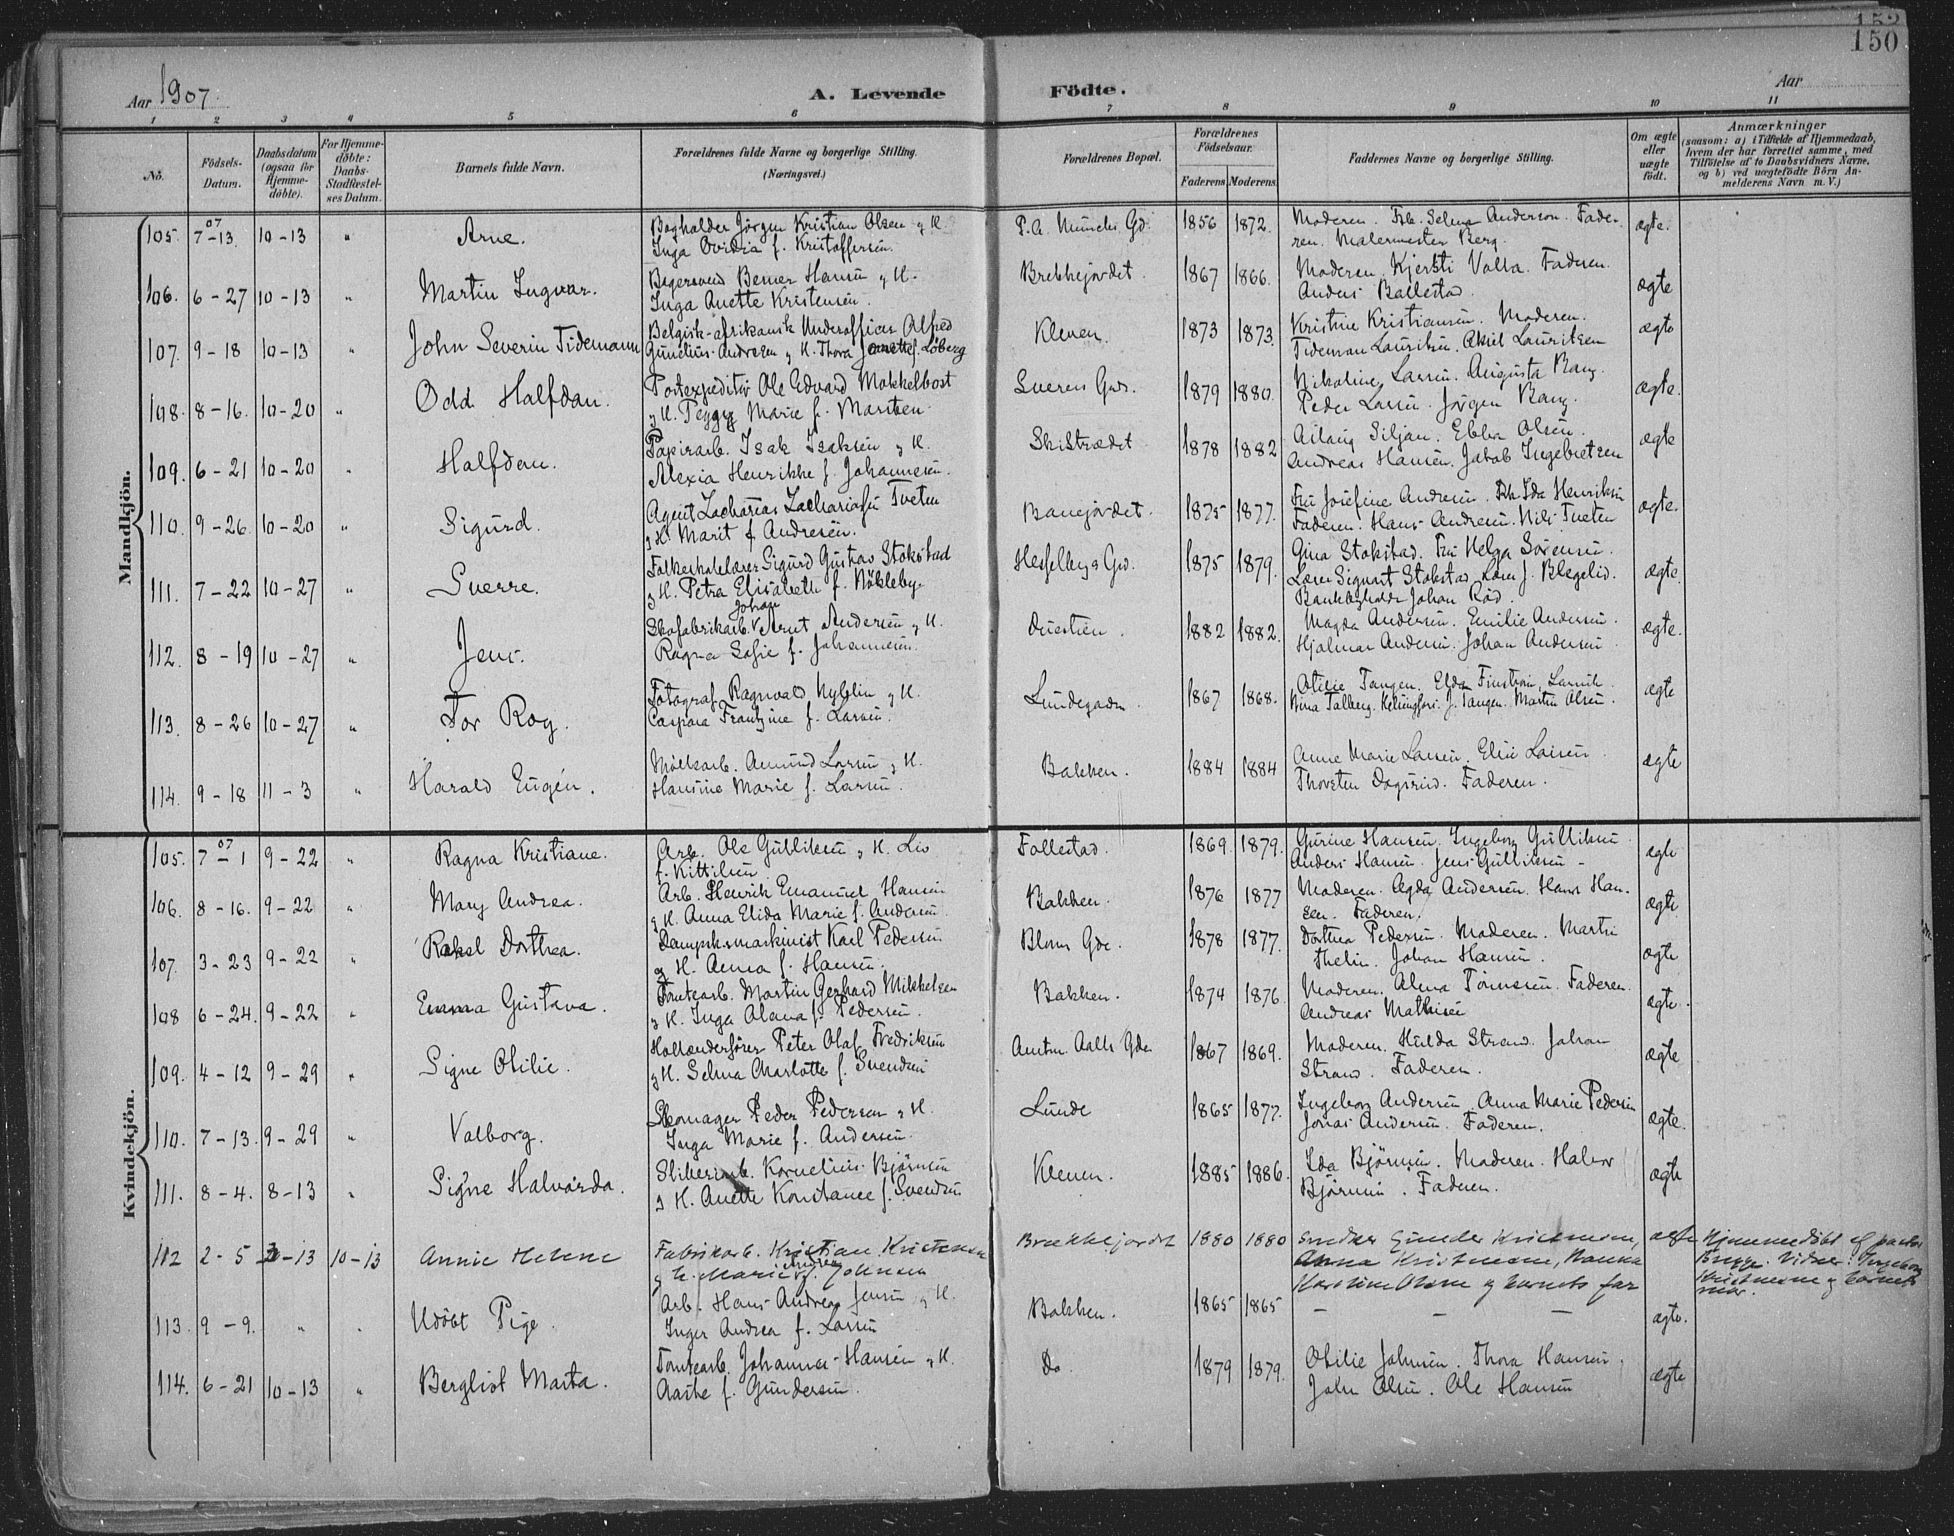 152
150
Aar 1907. A. Levende Födte. Aar
1 2 3 4 5 6 7 8 9 10 11
No. Födsels-Datum. Daabsdatum (ogsaa for Hjemme-döbte). For Hjemme-döbte: Daabs-Stadfæstel-ses Datum. Barnets fulde Navn. Forældrenes fulde Navne og borgerlige Stilling. (Næringsvei.) Forældrenes Bopæl. Forældrenes Födselsaar. Faderens Moderens. Faddernes Navne og borgerlige Stilling. Om ægte eller uægte födt. Anmærkninger (saasom: a) i Tilfælde af Hjemmedaab, hvem der har forrettet samme, med Tilföielse af to Daabsvidners Navne, og b) ved uægtefödte Börn An-melderens Navn m. V.)
Mandkjön.
105. 07 7-13. 10-13 " Arne. Bogholder Jörgen Kristian Olsen og H. P. A. Munchs Gd. 1856 1872. Moderen. Frk. Selma Anderson. Fade- ægte.
Inga Ovidia f. Kristoffersen. ren. Malermester Berg.
106. 6-27 10-13 " Martin Ingvar. Berner Hansen og H. Brekkejordet. 1867 1866. Moderen. Kjersti Volla. Faderen. ægte
Inga Anette Kristensen. Anders Ballestad.
107. 9-18 10-13 " John Severin Tidemann Belgisk-afrikansk Underofficer Alfred Kleven. 1873 1873. Kristine Kristiansen. Moderen. ægte
Gunelius Andresen og H. Thora Janette f. Löberg Tideman Lauritsen. Aksel Lauritsen
108. 8-16. 10-20 " Odd Halfdan. Postexpeditör Ole Edvard Mokkelbost Sverres Grd. 1879 1880. Nikoline Larsen. Augusta Bang. ægte.
og H. Peggy Marie f. Martsen. Peder Larsen. Jörgen Bang.
109. 6-21 10-20 " Halfdan. Papirarb. Isak Isaksen og H. Skistrædet 1878 1882 Aslaug Siljan. Ebba Olsen. ægte
Alexia Henrikke f. Johannesen. Andreas Hansen. Jakob Ingebretsen
110. 9-26. 10-20 " Sigurd. Agent Zacharias Zachariasen Tveten Banejordet. 1875 1877. Fru Josefine Andresen. Frk. Ida Henriksen ægte.
og H. Marit f. Andresen. Faderen. Hans Andresen. Nils Tveten
111. 7-22 10-27 " Sverre. Folkeskolelærer Sigurd Gustav Stokstad Hesselbergs Grd. 1875 1879. Gina Stokstad. Fru Helga Sörensen. ægte.
og H. Petra Elisabeth f. Nökleby. Lærer Sigvart Stokstad. Lærer J. Blegelid.
Bankbogholder Johan Röd.
112. 8-19 10-27 " Jens. Skofabrikarb. Johan Arnt Andersen og H. Duestien. 1882 1882. Magda Andersen. Emilie Andersen. ægte.
Ragna Sofie f. Johannesen. Hjalmar Andersen. Johan Andersen
113. 8-26 10-27 " Tor Roy. Fotograf Ragnvald Nyblin og H. Lundegaden 1867 1868. Otilie Tangen. Elda Finström, Larvik. ægte
Caspara Frantzine f. Larsen. Nina Talberg, Helsingfors. J. Tangen. Martin Olsen.
114. 9-18 11-3 " Harald Eugén. Möllearb. Amund Larsen og H. Bakken. 1884 1884 Anne Marie Larsen. Elise Larsen. ægte
Hansine Marie f. Larsen. Thorsten Dagsrud. Faderen.
Kvindekjön.
105. 07 7-1 9-22 " Ragna Kristiane. Arb. Ole Gulliksen og H. Liv Follestad. 1869 1879. Gurine Hansen. Ingeborg Gulliksen. ægte
f. Kittilsen. Anders Hansen. Jens Gulliksen -
106. 8-16. 9-22 " Mary Andrea. Arb. Henrik Emanuel Hansen Bakken. 1876 1877 Moderen. Agda Andersen. Hans Han- ægte
og H. Anna Elida Marie f. Andersen. sen. Faderen.
107. 3-23 9-22 " Rakel Dorthea. Dampsk.maskinist Karl Pedersen Bloms Gde. 1878 1877. Dorthea Pedersen. Moderen. Martin ægte
og H. Anna f. Hansen. Thelin. Johan Hansen.
108 6-24. 9-22 " Emma Gustava. Tomtearb. Martin Gerhard Mikkelsen Bakken. 1874 1876. Moderen. Alma Tönnesen. Faderen. ægte.
og H. Inga Olava f. Pedersen. Andreas Mathisen
109. 4-12 9-29 " Signe Otilie. Hollænderförer Peter Olaf Fredriksen Amtm. Aalls Gde 1867 1869. Moderen. Hulda Strand. Johan ægte
og H. Selma Charlotte f. Svendsen Strand. Faderen.
110. 7-13. 9-29 " Valborg. Skomager Peder Pedersen og H. Lunde 1865 1877. Ingeborg Andersen. Anna Marie Pedersen ægte.
Inga Marie f. Andersen. Jonas Andersen. Faderen.
111. 8-4. 8-13 " Signe Halvarda. Sliberiarb. Kornelius Björnsen Kleven. 1885 1886. Ida Björnsen. Moderen. Halvor ægte
og H. Anette Konstance f. Svendsen Björnsen. Faderen.
112 2-5 -13 10-13 Annie Helene Fabrikarb. Kristian Kristensen Brækkejordet 1880 1880 Snedker Gunder Kristensen, ægte Hjemmedöbt af pastor
og h. Marie Andrea f. Johnsen Anna Kristensen, Hanna Brygge. Vidner: Ingeborg
Karoline Olsen og barnets far Kristensen og barnets
mor.
113. 9-9. " . Udöbt Pige. Arb. Hans Andreas Jensen og H. Bakken. 1865 1865 - - - ægte.
Inger Andrea f. Larsen
114. 6-21 10-13 " Bergliot Marta. Tomtearb. Johannes Hansen og H. Do. 1879 1879. Otilie Johnsen. Thora Hansen. ægte
Aaste f. Gundersen. John Olsen. Ole Hansen